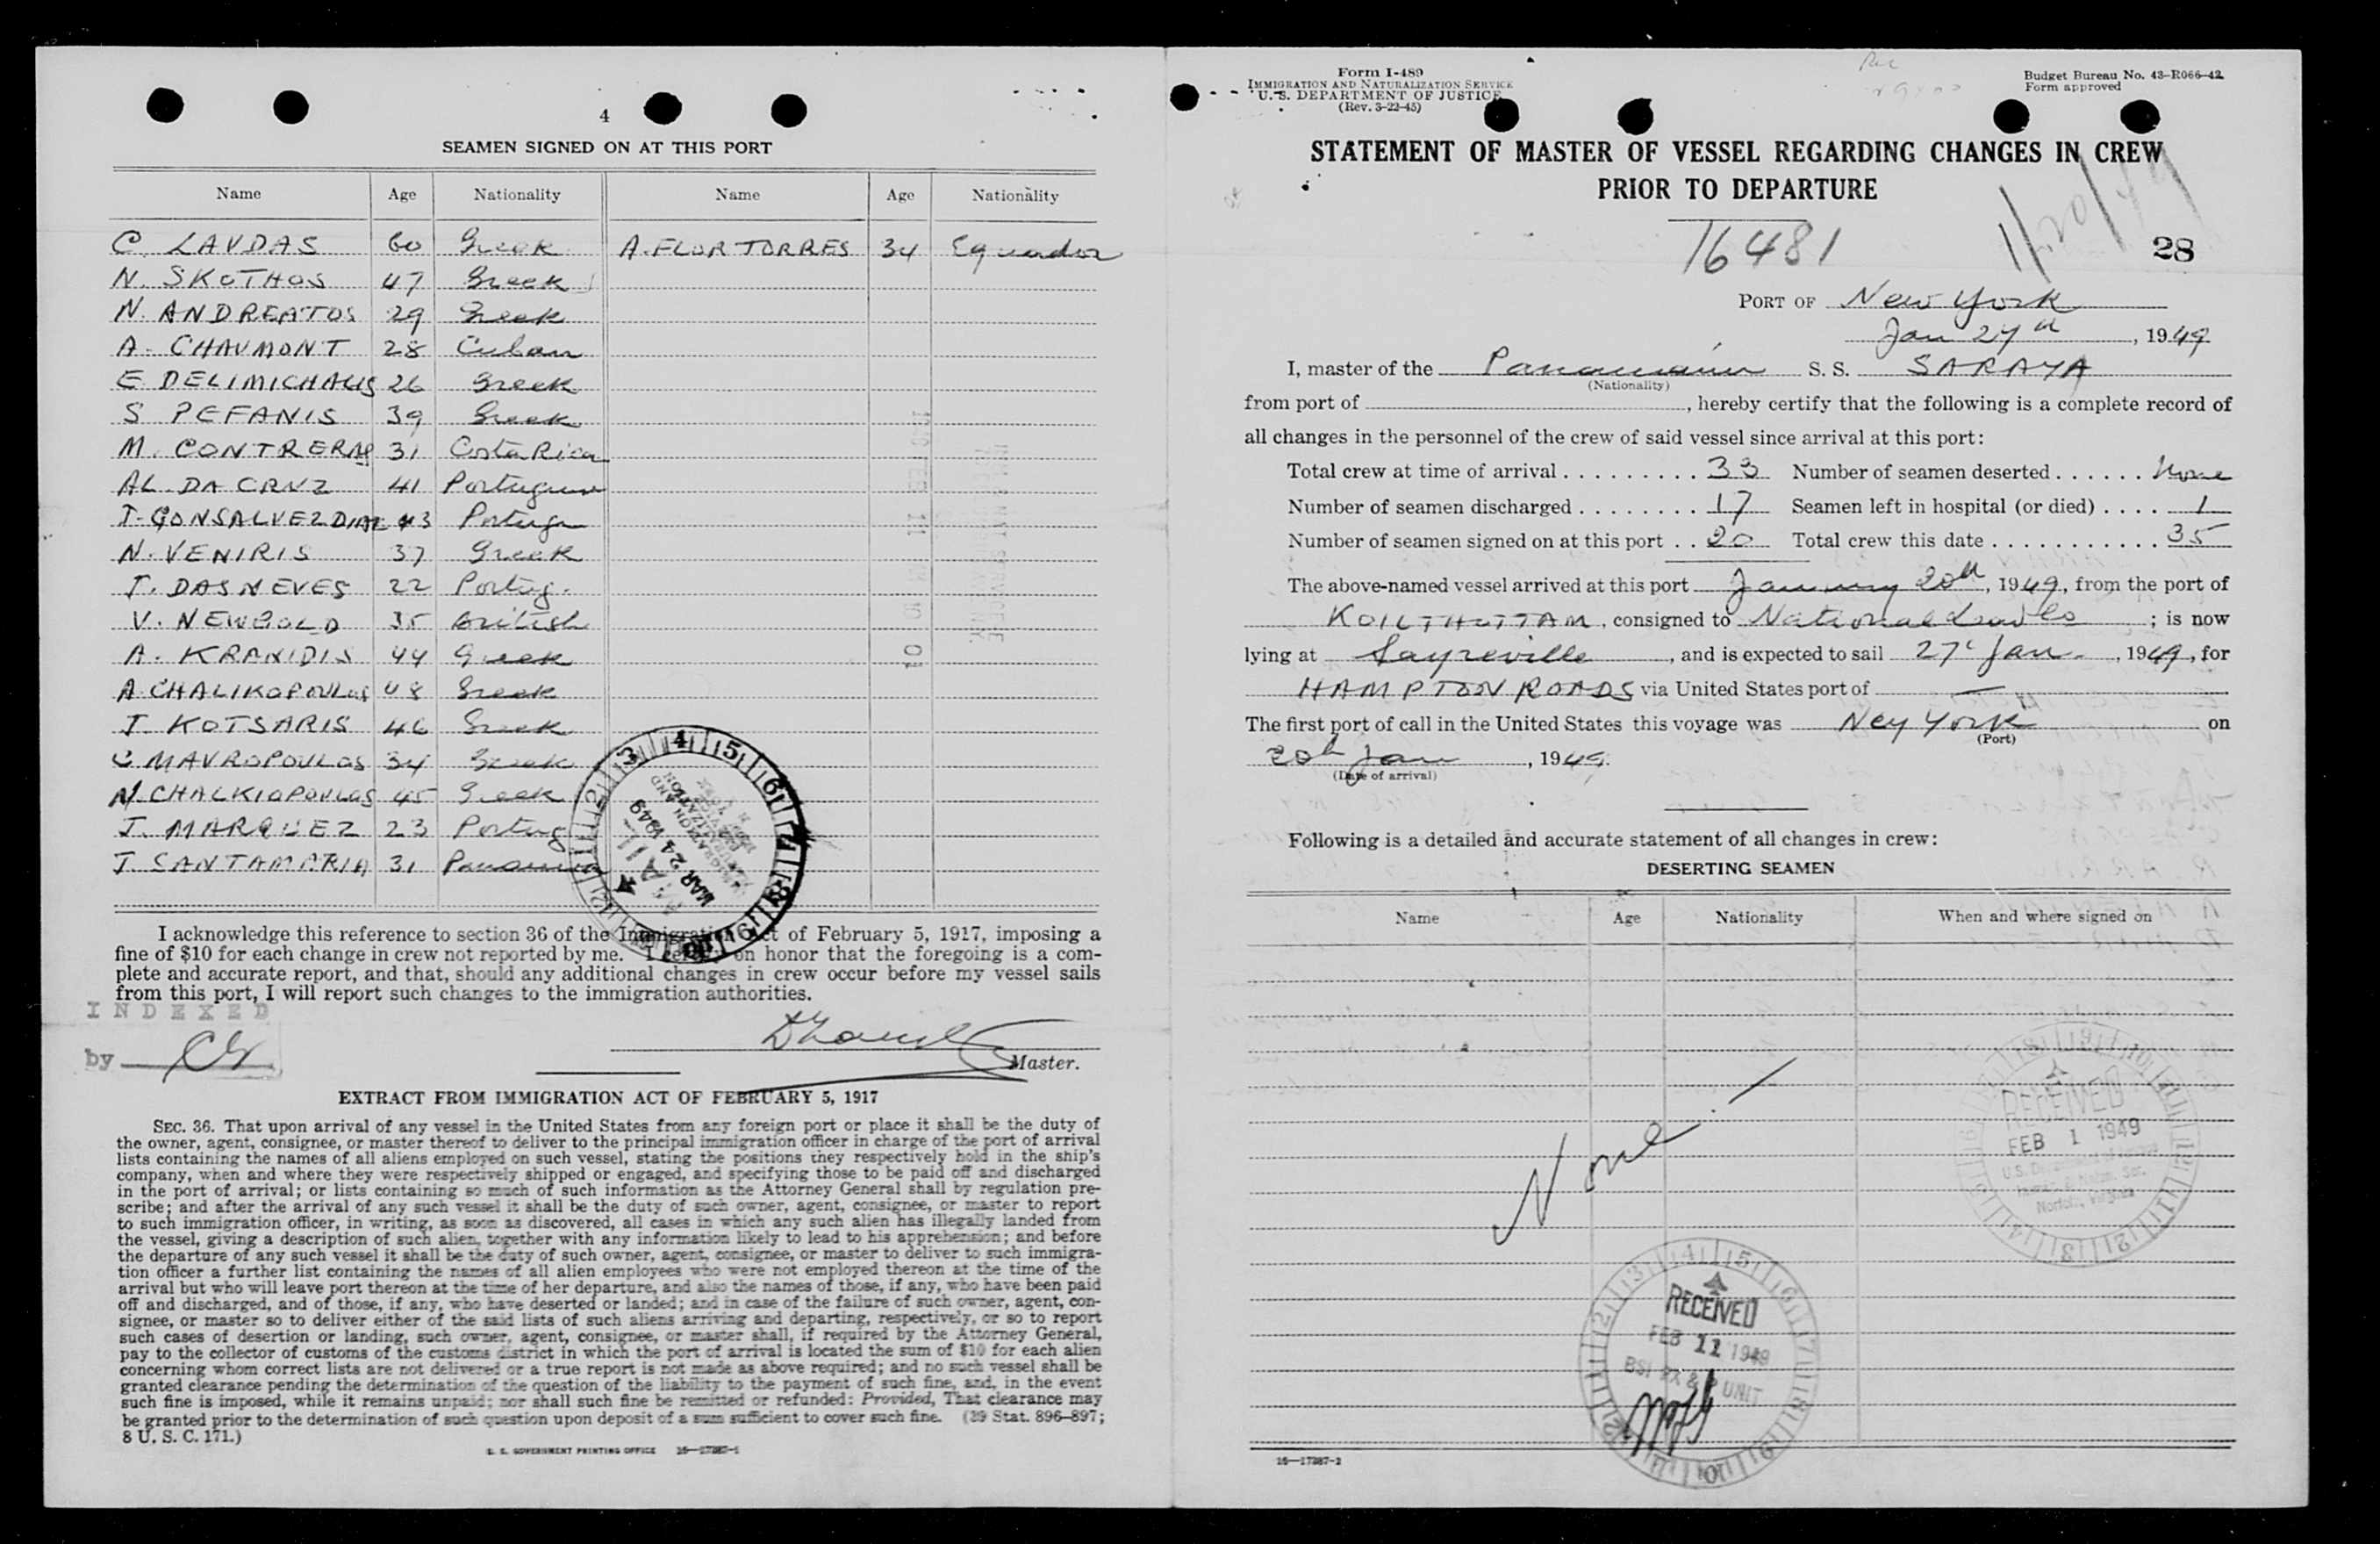 4
SEAMEN SIGNED ON AT THIS PORT
Name Age Nationality Name Age Nationality
C. LAVDAS 60 Greek A. FLOR TORRES 34 Equador
N. SKOTHOS 47 Greek
N. ANDREATOS 29 Greek
A. CHAUMONT 28 Cuban
E DELIMICHALIS 26 Greek
S PEFANIS 39 Greek
M. CONTRERAS 31 Costa Rica
AL. DA CRUZ 41 Portuguese
J. GONSALVEZ DIAZ 43 Portugu
N. VENIRIS 37 Greek
J. DAS NEVES 22 Portug.
V. NEWBOLD 35 British
A. KRANIDIS 44 Greek
A. CHALIKOPOULOS 48 Greek
J. KOTSARIS 46 Greek
C. MAVROPOULOS 34 Greek
N. CHALKIOPOULOS 45 Greek
J. MARQUEZ 23 Portug
J. SANTAMARIA 31
MAR 24 1949
I acknowledge this reference to section 36 of the Immigration Act of February 5, 1917, imposing a
fine of $10 for each change in crew not reported by me. I certify on honor that the foregoing is a com-
plete and accurate report, and that, should any additional changes in crew occur before my vessel sails
from this port, I will report such changes to the immigration authorities.
INDEXED
by
Master.
EXTRACT FROM IMMIGRATION ACT OF FEBRUARY 5, 1917
SEC. 36. That upon arrival of any vessel in the United States from any foreign port or place it shall be the duty of
the owner, agent, consignee, or master thereof to deliver to the principal immigration officer in charge of the port of arrival
lists containing the names of all aliens employed on such vessel, stating the positions they respectively hold in the ship's
company, when and where they were respectively shipped or engaged, and specifying those to be paid off and discharged
in the port of arrival; or lists containing so much of such information as the Attorney General shall by regulation pre-
scribe; and after the arrival of any such vessel it shall be the duty of such owner, agent, consignee, or master to report
to such immigration officer, in writing, as soon as discovered, all cases in which any such alien has illegally landed from
the vessel, giving a description of such alien, together with any information likely to lead to his apprehension; and before
the departure of any such vessel it shall be the duty of such owner, agent, consignee, or master to deliver to such immigra-
tion officer a further list containing the names of all alien employees who were not employed thereon at the time of the
arrival but who will leave port thereon at the time of her departure, and also the names of those, if any, who have been paid
off and discharged, and of those, if any, who have deserted or landed; and in case of the failure of such owner, agent, con-
signee, or master so to deliver either of the said lists of such aliens arriving and departing, respectively, or so to report
such cases of desertion or landing, such owner, agent, consignee, or master shall, if required by the Attorney General,
pay to the collector of customs of the customs district in which the port of arrival is located the sum of $10 for each alien
concerning whom correct lists are not delivered or a true report is not made as above required; and no such vessel shall be
granted clearance pending the determination of the question of the liability to the payment of such fine, and, in the event
such fine is imposed, while it remains unpaid; nor shall such fine be remitted or refunded: Provided, That clearance may
be granted prior to the determination of such question upon deposit of a sum sufficient to cover such fine. (39 Stat. 896–897;
8 U. S. C. 171.)
U. S. GOVERNMENT PRINTING OFFICE 16—17387-1
Form I-489
IMMIGRATION AND NATURALIZATION SERVICE
U. S. DEPARTMENT OF JUSTICE
(Rev. 3-22-45)
Budget Bureau No. 43–R066–42
Form approved
STATEMENT OF MASTER OF VESSEL REGARDING CHANGES IN CREW
PRIOR TO DEPARTURE
16481
1/20/49
28
PORT OF New York
Jan 27th, 1949
I, master of the Panamanian S. S. SARAYA
(Nationality)
from port of , hereby certify that the following is a complete record of
all changes in the personnel of the crew of said vessel since arrival at this port:
Total crew at time of arrival 33 Number of seamen deserted None
Number of seamen discharged 17 Seamen left in hospital (or died) 1
Number of seamen signed on at this port 20 Total crew this date 35
The above-named vessel arrived at this port January 20th, 1949, from the port of
KOILTHOTTAM, consigned to National ; is now
lying at Sayreville, and is expected to sail 27 Jan., 1949, for
HAMPTON ROADS via United States port of —
The first port of call in the United States this voyage was Ney York on
(Port)
20th Jan, 1949.
(Date of arrival)
Following is a detailed and accurate statement of all changes in crew:
DESERTING SEAMEN
Name Age Nationality When and where signed on
None
RECEIVED
FEB 1 1949
Norfolk, Virginia
RECEIVED
FEB 11 1949
UNIT
16—17387-2